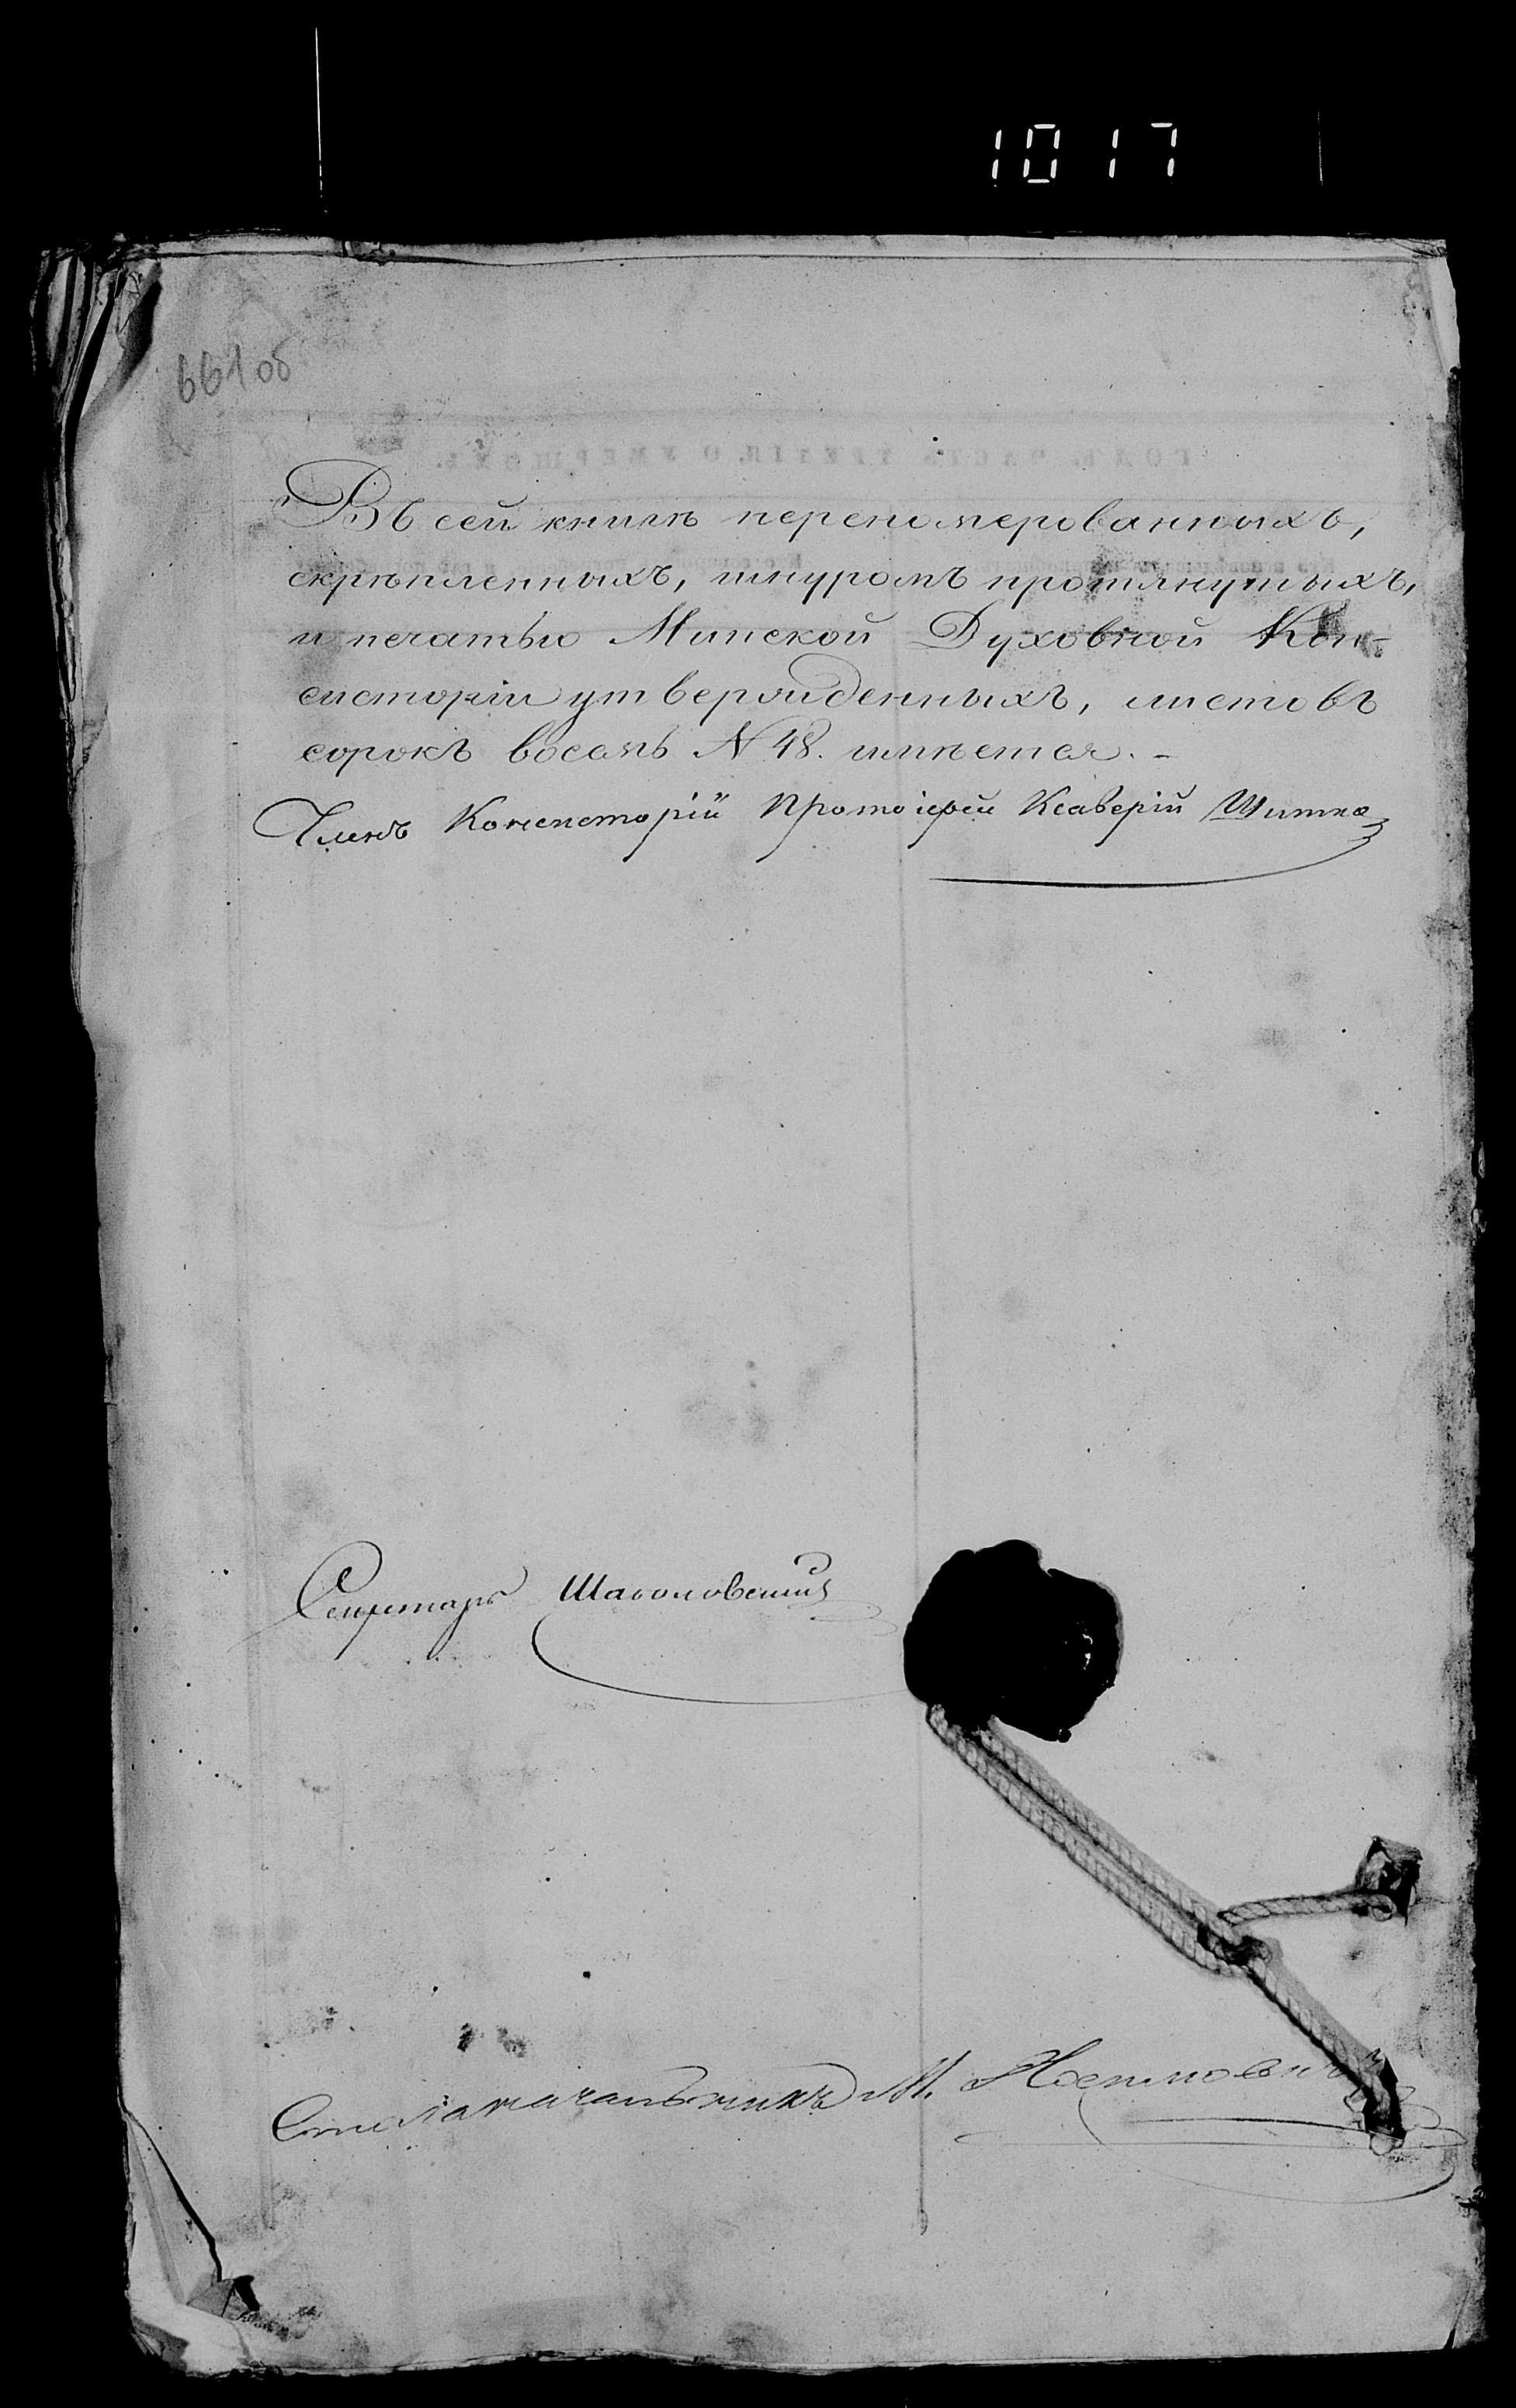 1017
661об
Въ сей книгѣ переномерованныхъ,
скрѣпленныхъ, шнуромъ протянутыхъ,
и печатью Минской Духовной Кон-
систоріи утвержденныхъ, листовъ
сорокъ восемь N 48. имѣется. -
Членъ Консисторіи Протоіерей Ксаверій
Секретарь
Столоначальникъ М.